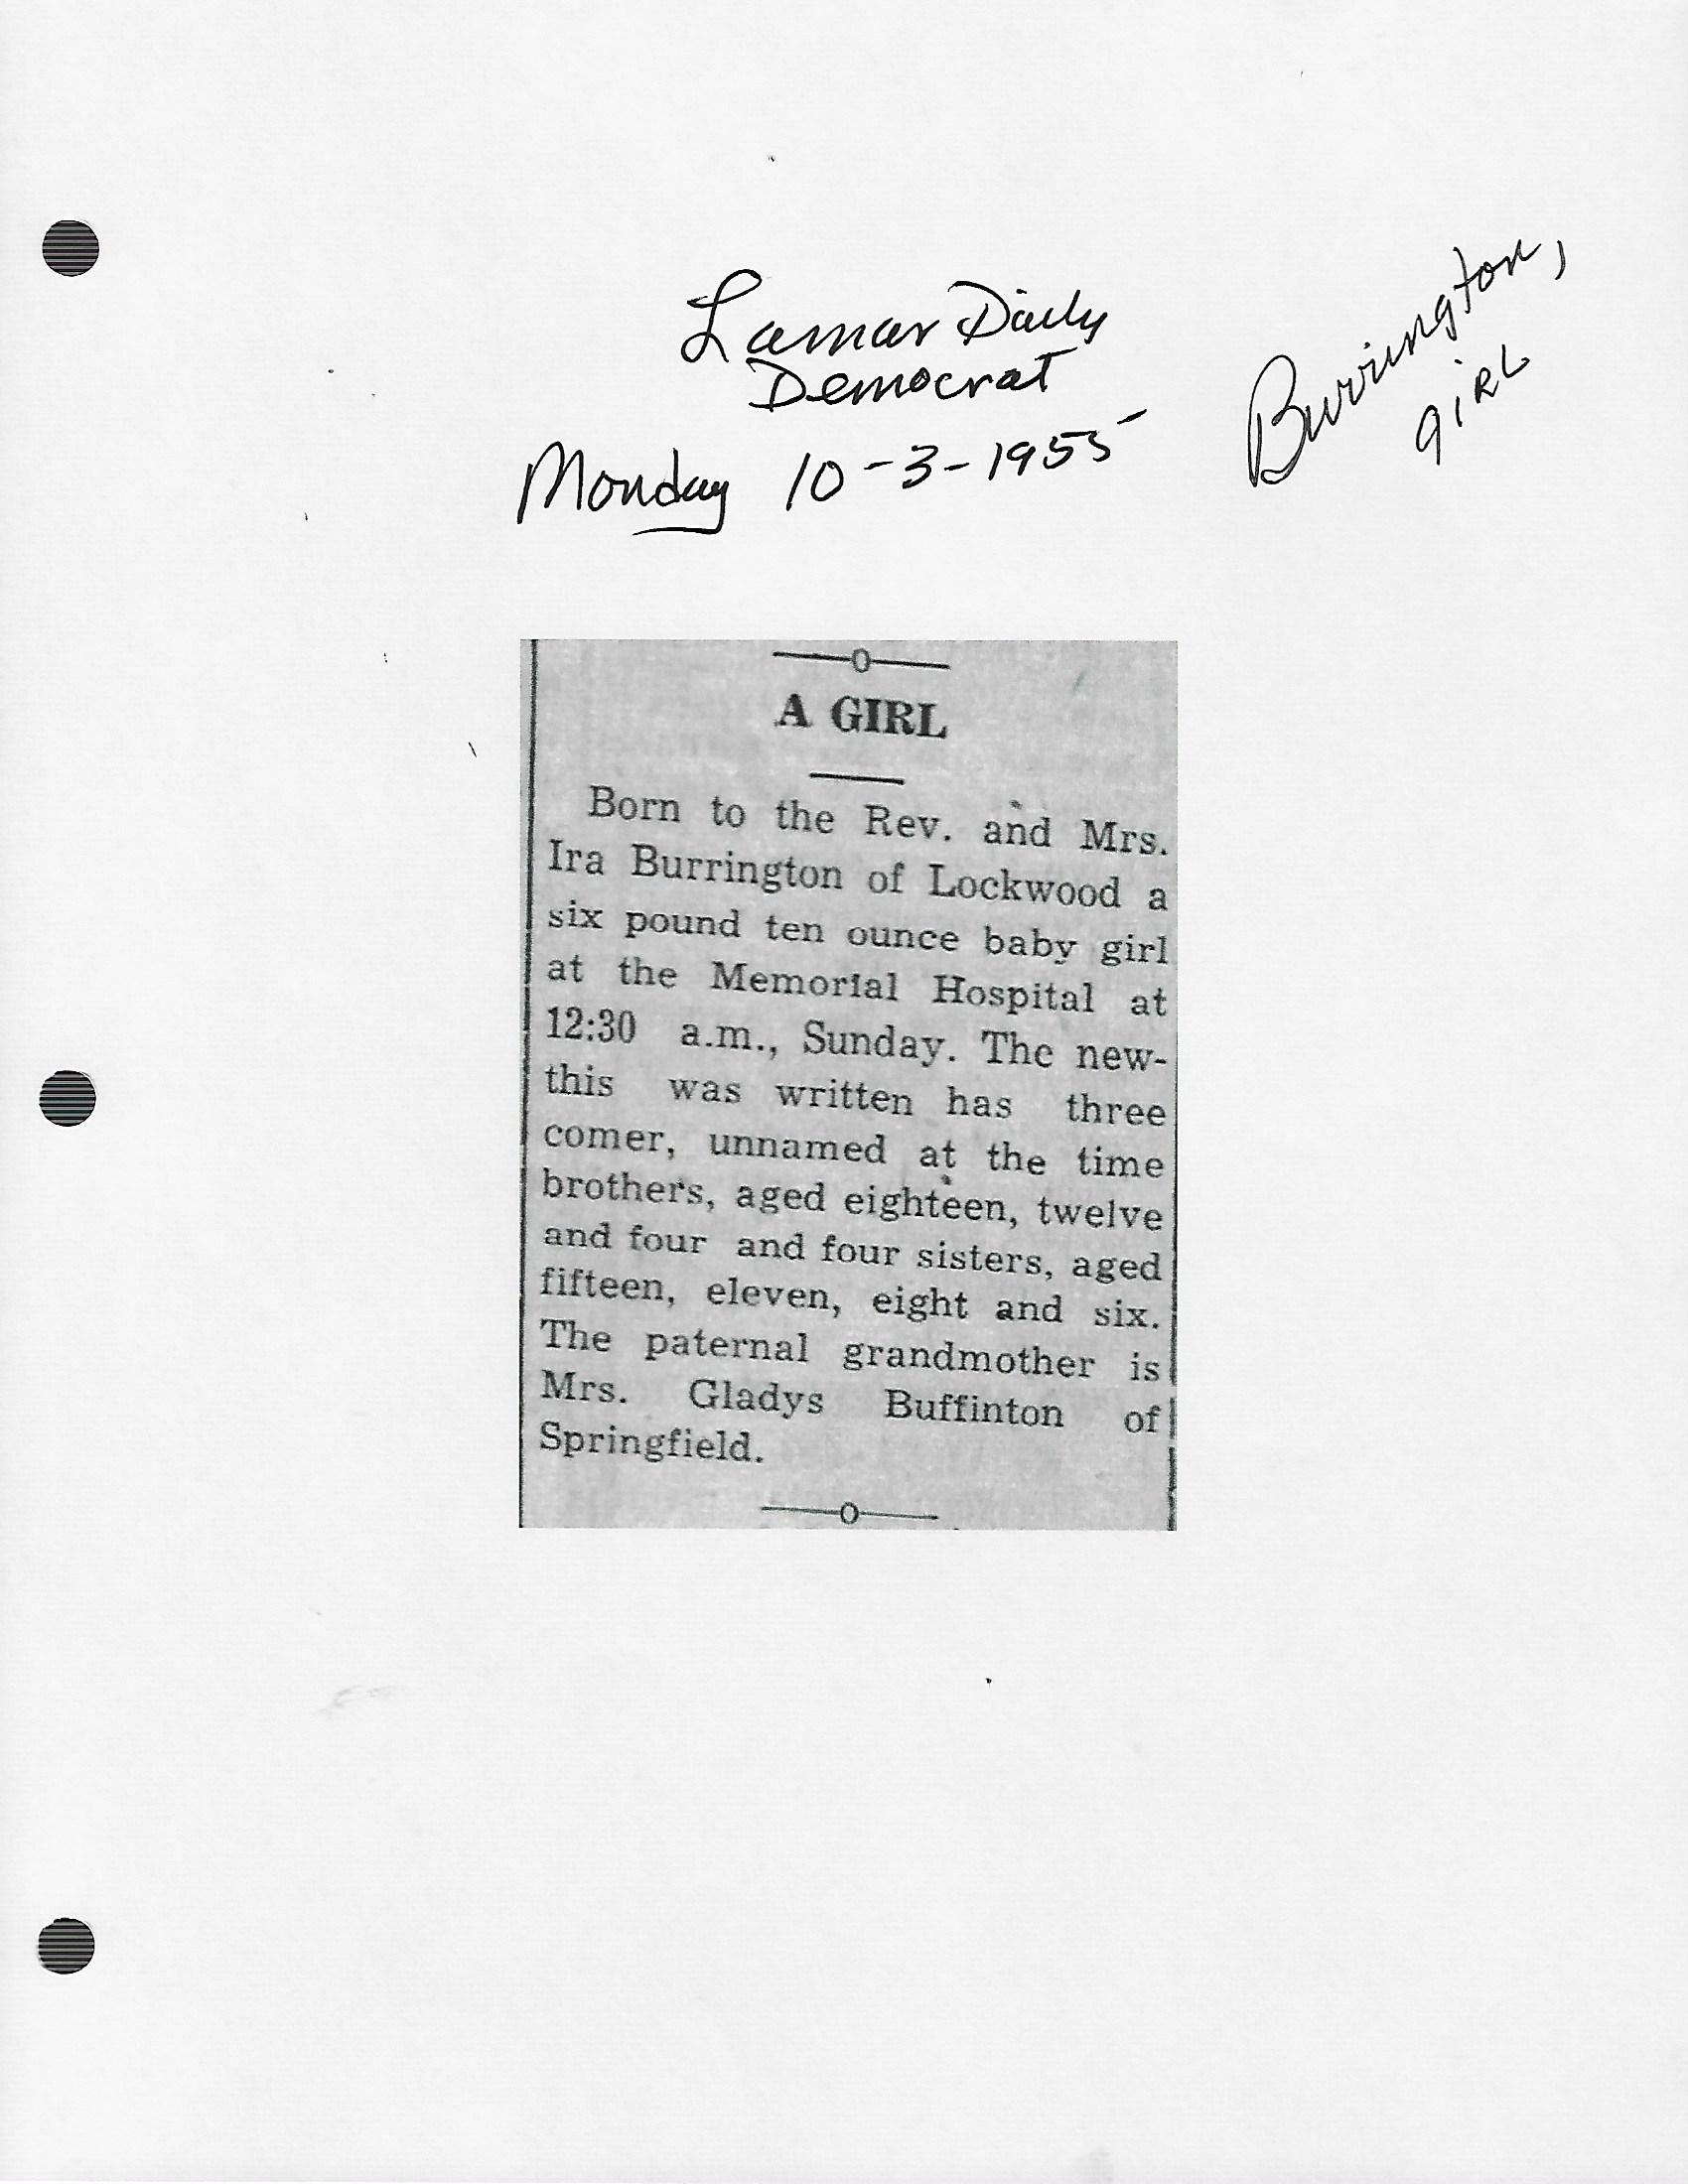 Lamar Daily
Democrat
Monday 10-3-1955
Burrington,
girl
A GIRL
Born to the Rev. and Mrs.
Ira Burrington of Lockwood a
six pound ten ounce baby girl
at the Memorial Hospital at
12:30 a.m., Sunday. The new-
this was written has three
comer, unnamed at the time
brothers, aged eighteen, twelve
and four and four sisters, aged
fifteen, eleven, eight and six.
The paternal grandmother is
Mrs. Gladys Buffinton of
Springfield.